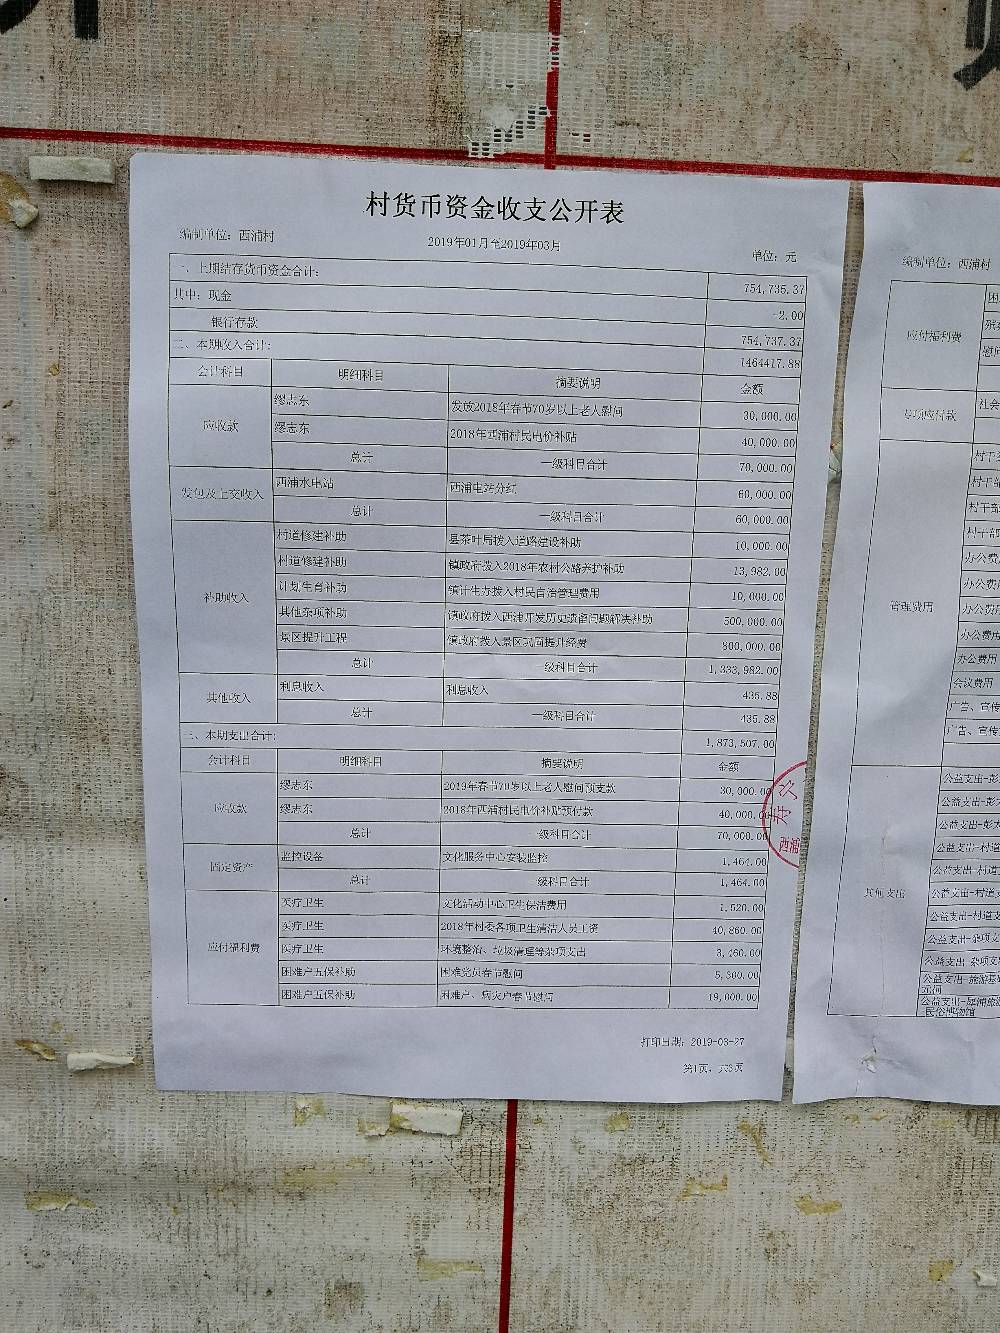 村货币资金收支公开表
编制单位：西浦村
2019年01月至2019年03月
单位：元
一、上期结存货币资金合计：
754,735.37
其中：现金
-2.00
银行存款
754,737.37
二、本期收入合计：
1464417.88
会计科目 明细科目 摘要说明 金额
应收款
缪志东 发放2018年春节70岁以上老人慰问 30,000.00
缪志东 2018年西浦村民电价补贴 40,000.00
总计 一级科目合计 70,000.00
发包及上交收入
西浦水电站 西浦电站分红 60,000.00
总计 一级科目合计 60,000.00
补助收入
村道修建补助 县茶叶局拨入道路建设补助 10,000.00
村道修建补助 镇政府拨入2018年农村公路养护补助 13,982.00
计划生育补助 镇计生办拨入村民自治管理费用 10,000.00
其他杂项补助 镇政府拨入西浦开发历史遗留问题解决补助 500,000.00
景区提升工程 镇政府拨入景区 提升经费 800,000.00
总计 一级科目合计 1,333,982.00
其他收入
利息收入 利息收入 435.88
总计 一级科目合计 435.88
三、本期支出合计：
1,873,507.00
会计科目 明细科目 摘要说明 金额
应收款
缪志东 2019年春节70岁以上老人慰问预支款 30,000.00
缪志东 2018年西浦村民电价补贴预付款 40,000.00
总计 一级科目合计 70,000.00
固定资产
监控设备 文化服务中心安装监控 1,464.00
总计 一级科目合计 1,464.00
应付福利费
医疗卫生 文化活动中心卫生保洁费用 1,520.00
医疗卫生 2018年村委各项卫生清洁人员工资 40,860.00
医疗卫生 环境整治、垃圾清理等杂项支出 3,460.00
困难户五保补助 困难党员春节慰问 5,300.00
困难户五保补助 困难户、病灾户春节慰问 19,000.00
打印日期：2019-03-27
第1页，共3页
寿
西浦
编制单位：西浦村
应付福利费
专项应付款
社会
管理费用
村干部
村干部
村干部
办公费用
办公费用
办公费用
会议费用
广告、宣传
广告、宣传
其他支出
公益支出-村道
公益支出-村道
公益支出-村道支
公益支出-村道支
公益支出-杂项支
公益支出-杂项支
民俗博物馆